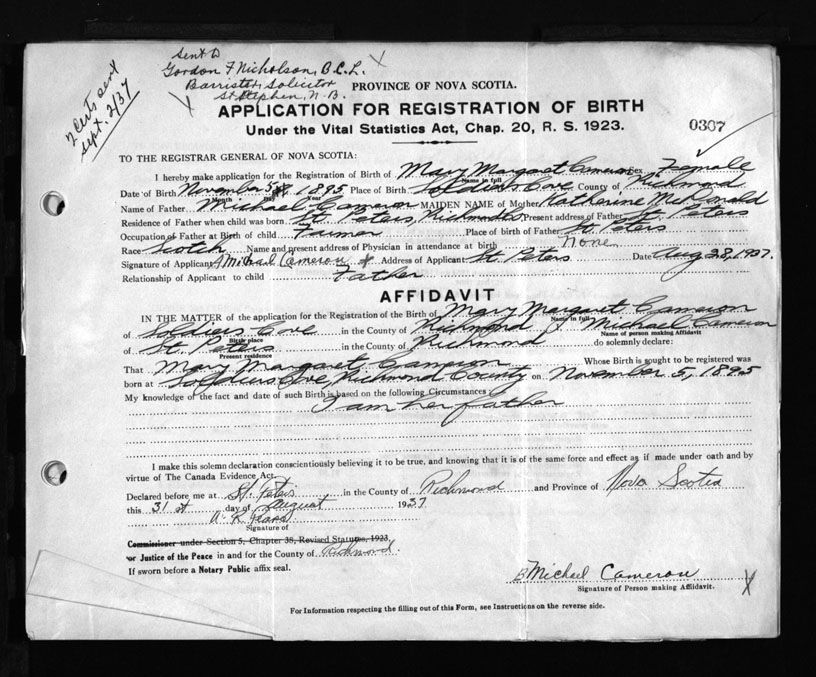 2 Certs sent
Sept. 2/37
Sent to
Gordon F Nicholson, B.C.L.
Barrister, Solicitor
St Stephen, N.B.
PROVINCE OF NOVA SCOTIA.
APPLICATION FOR REGISTRATION OF BIRTH
Under the Vital Statistics Act, Chap. 20, R. S. 1923.
0307
TO THE REGISTRAR GENERAL OF NOVA SCOTIA:
I hereby make application for the Registration of Birth of Mary Margaret Cameron Sex Female
Name in full
Date of Birth November 5 1895 Place of Birth Soldiers Cove County of Richmond
Month Day Year
Name of Father Michael Cameron MAIDEN NAME of Mother Katherine McDonald
Residence of Father when child was born St. Peters, Richmond Present address of Father St. Peters
Occupation of Father at Birth of child Farmer Place of birth of Father St. Peters
Race Scotch Name and present address of Physician in attendance at birth None
Signature of Applicant Michael Cameron Address of Applicant St. Peters Date Aug 28, 1937.
Relationship of Applicant to child Father
AFFIDAVIT
IN THE MATTER of the application for the Registration of the Birth of Mary Margaret Cameron
Name in full
of Soldiers Cove in the County of Richmond I Michael Cameron
Birth place Name of person making Affidavit
of St. Peters in the County of Richmond do solemnly declare:
Present residence
That Mary Margaret Cameron Whose Birth is sought to be registered was
born at Soldiers Cove, Richmond County on November 5, 1895
My knowledge of the fact and date of such Birth is based on the following Circumstances
I am her father
I make this solemn declaration conscientiously believing it to be true, and knowing that it is of the same force and effect as if made under oath and by
virtue of The Canada Evidence Act.
Declared before me at St. Peters in the County of Richmond and Province of Nova Scotia
this 31st day of August 1937
Signature of
Commissioner under Section 5, Chapter 38, Revised Statutes, 1923,
or Justice of the Peace in and for the County of Richmond.
If sworn before a Notary Public affix seal.
Michael Cameron
Signature of Person making Affidavit.
For Information respecting the filling out of this Form, see Instructions on the reverse side.